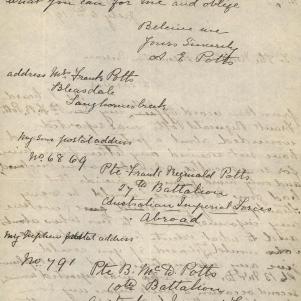 what you can for me and oblige
Believe me
Yours Sincerely
A. E. Potts
address Mr. Frank Potts
Bleasdale
Langhornes Creek
My Sons postal address
No 6869
Pte Frank Reginald Potts
27th Battalion
Australian Imperial Forces
Abroad
My Nephew postal address
No. 791
Pte B. McD Potts
10th Battalion